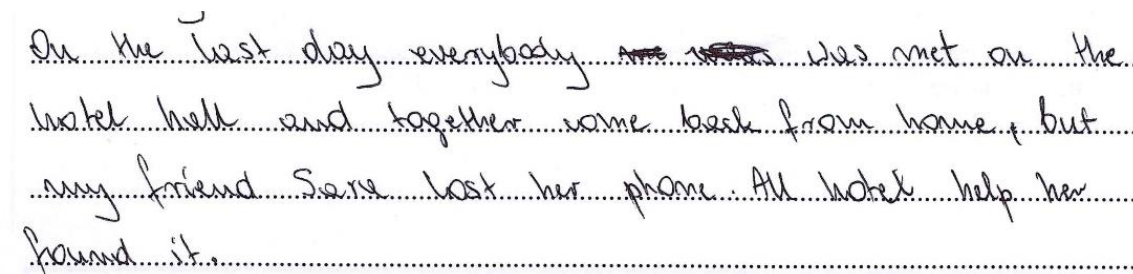 On the last day everybody was met on the
hotel hall and together come back from home, but
my friend Sara lost her phone. All hotel help her
found it.